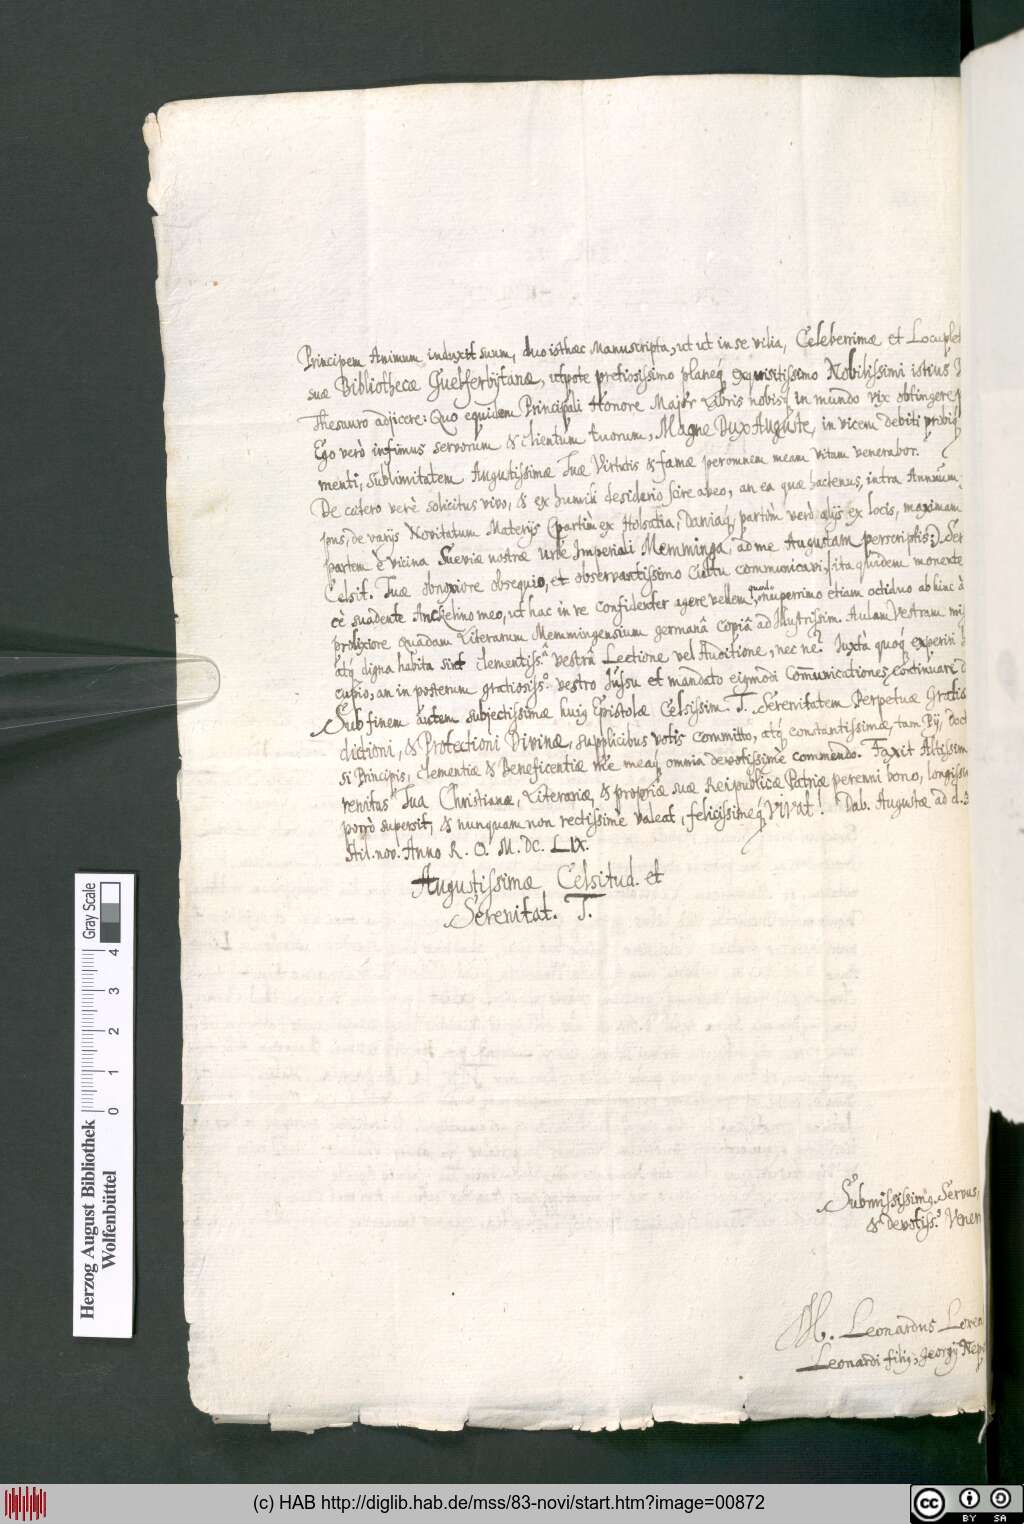 Principem Animum induxit suum, duo isthæc Manuscripta, ut ut in se vilia, Celeberrimæ et Locuplet
suæ Bibliothecæ Guelferbÿtanæ, utpote pretiosissimo planeq́ exquisitissimo Nobilissimi istius
Thesauro adjicere: Quo equidem Principali Honore Major Libris nobisq́ in mundo vix obtingere
Ego verò infimus servorum & clientum tuorum, Magne Dux Auguste, in vicem debiti
menti, Sublimitatem Augustissimæ Tuæ Virtutis & famæ per omnem meam vitam venerabor.
De cætero verè solicitus vivo, & ex humili desiderio scire aveo, an ea quæ hactenus, intra Annuum
de varijs Novitatum Materijs (partìm ex Holsatia, Daniaq́, partìm verò alijs ex locis, maximam
partem è vicina Sueviæ nostræ Urbe Imperiali Memminga, ad me Augustam perscriptis:)
Celsit. Tuæ obnoxiore obsequio, et observantissimo Cultu communicavi, ita quidem monente
cè suadente Anckelino meo, ut hac in re confidenter agere vellem, nuperrimo etiam octiduo abhinc
prolixiore quâdam Literarum Memmingensium germanâ Copiâ ad Illustrissim. Aulam Vestram
atq́ digna habita sint clementiss.â vestrâ Lectione vel Auditione, nec ne? Iuxtà quoq́ experiri
cupio, an in posterum gratiosiss.o vestro Jussu et mandato ejgmodi Communicationes, continuare
Sub finem autem subjectissimæ huig Epistolæ Celsissim. T. Serenitatem Perpetuæ Gratiæ
dictioni, & Protectioni Divinæ, supplicibus votis committo, atq́ constantissimæ, tam Pij,
si Principis, Clementiæ & Beneficentiæ me meaq́ omnia devotissimè commendo. Faxit Altissim
renitas Tua Christianæ, Literariæ, & propriæ suæ Reipublicæ Patriæ perenni bono,
porrò supersit, & nunquam non rectissimè valeat, felicissimeq́ VIVat! Dab. Augustæ ad d.
Stil. nov. Anno R. O. M. DC. LIX.
Augustissimæ Celsitud. et
Serenitat. T.
Submississimg. Servus,
& devotiss.s
M. Leonardus
Leonardi filig, Georgij
Gray Scale
0 1 2 3 4
Herzog August Bibliothek
Wolfenbüttel
(c) HAB http://diglib.hab.de/mss/83-novi/start.htm?image=00872
cc BY SA